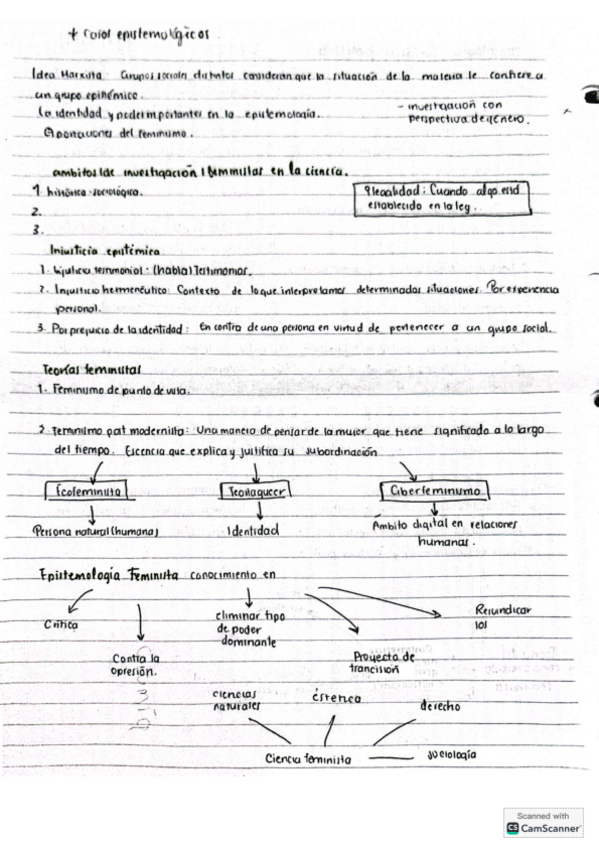 + roiol epistemológicos.
Idea Marxista: Grupos sociales distintos consideran que la situación de la materia le confiere a
un grupo epistémico.
La identidad y poder importantes en la epistemología.
- investigación con
perspectiva de género.
Aportaciones del feminismo.
ambitos de investigación feministas en la ciencia.
1 histórico-sociológico.
2.
3.
*legalidad: Cuando algo está
establecido en la ley.
Injusticia epistémica
1. Injusticia testimonial: (habla) Testimonios.
2. Injusticia hermenéutica: Contexto de lo que interpretamos determinadas situaciones. Por experiencia
personal.
3. Por prejuicio de la identidad: En contra de una persona en virtud de pertenecer a un grupo social.
Teorías feministas
1. Feminismo de punto de vista.
2. Feminismo post modernista: Una manera de pensar de la mujer que tiene significado a lo largo
del tiempo. Escencia que explica y justifica su subordinación
Ecofeminista
Teoría queer
Ciberfeminismo
Persona natural (humana)
Identidad
Ámbito digital en relaciones
humanas.
Epistemología Feminista conocimiento en
Critica
Contra la
opresión.
eliminar tipo
de poder
dominante
Proyecto de
trancisión
Reivindicar
los
ciencias
naturales
derecho
Ciencia feminista
sociología
Scanned with
CS CamScanner